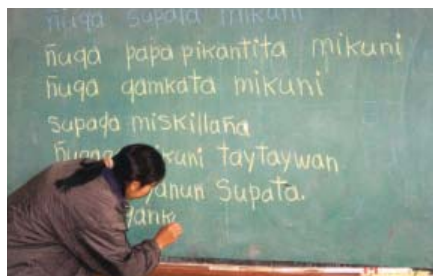 ñuqa supata mikuni
ñuqa papa pikantita mikuni
ñuqa qamkata mikuni
supaqa miskillaña
mikuni taytaywan
Supata.